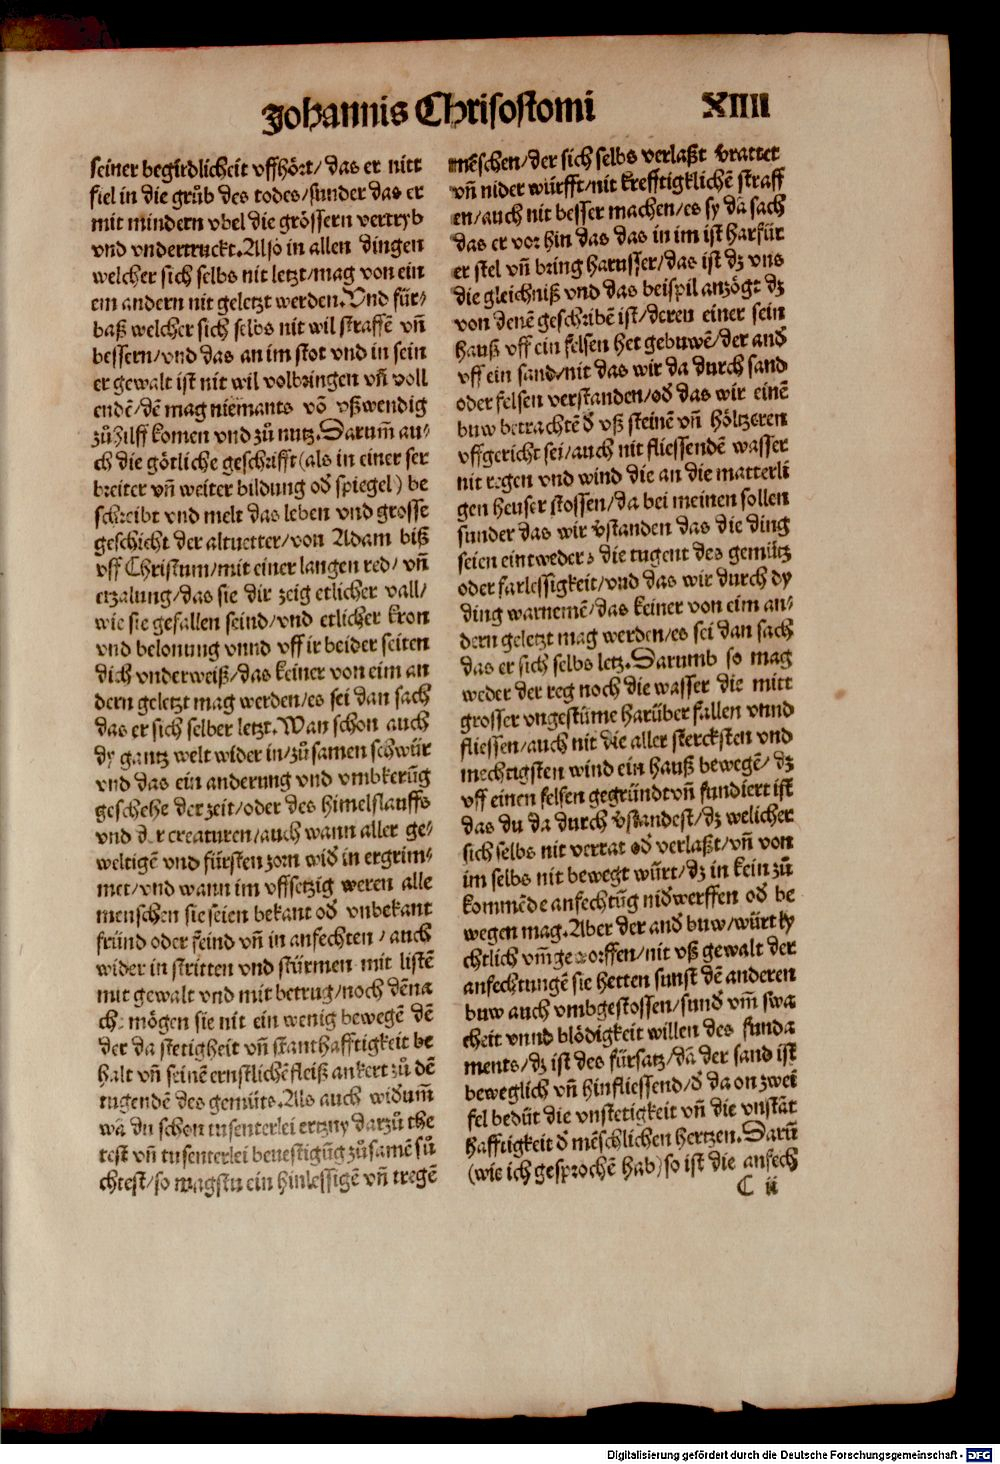 Johannis Chrisostomi XIIII
seiner begirdlicheit vffhört/das er nitt
fiel in die grůb des todes/sunder das er
mit mindern vbel die grössern vertryb
vnd vndertruckt. Also in allen dingen
welcher sich selbs nit letzt/mag von ein
em andern nit geletzt werden. Vnd für/
baß welcher sich selbs nit wil straffē vñ
bessern/vnd das an im stot vnd in sein
er gewalt ist nit wil volbringen vñ voll
endē/dē mag niemants vō vßwendig
zů hilff komen vnd zů nutz. Darum̄ au/
ch die götliche geschrifft (als in einer ser
breiter vñ weiter bildung od̄ spiegel) be
schreibt vnd melt das leben vnd grosse
geschicht der altuetter/von Adam biß
vff Christum/mit einer langen red/ vñ
erzalung/das sie dir zeig etlicher vall/
wie sie gefallen seind/vnd etlicher kron
vnd belonung vnnd vff ir beider seiten
dich vnderweiß/das keiner von eim an
dern geletzt mag werden/es sei dan sach
das er sich selber letzt. Wan schon auch
dy gantz welt wider in/zůsamen schwůr
vnd das ein anderung vnd vmbkerūg
geschehe der zeit/oder des himelslauffs
vnd der creaturen/auch wann aller ge/
weltigē vnd fürsten zorn wid̄ in ergrim/
met/vnd wann im vffsetzig weren alle
menschen sie seien bekant od̄ vnbekant
fründ oder feind vñ in anfechten/ auch
wider in stritten vnd stürmen mit listē
mit gewalt vnd mit betrug/noch dēna
ch mögen sie nit ein wenig bewegē dē
der da stetigheit vñ stanthafftigkeit be
halt vñ seinē ernstlichē fleiß ankert zů dē
tugendē des gemüts. Als auch widum̄
wā du schon tusenterlei ertzny darzů the
test vñ tusenterlei beuestigūg zůsamē sů
chtest/so magstu ein hinlessigē vñ tregē
mēschen/der sich selbs verlaßt vrattet
vñ nider würfft/nit krefftigklichē straff
en/auch nit besser machen/es sy dā sach
das er vor hin das das in im ist harfür
er stel vñ bring harusser/das ist dz vns
die gleichniß vnd das beispil anzögt dz
von denē geschribē ist/deren einer sein
hauß vff ein felsen het gebuwē/der and̄
vff ein sand/nit das wir da durch sand
oder felsen verstanden/od̄ das wir einē
buw betrachtē d̄ vß steinē vñ höltzeren
vffgericht sei/auch nit fliessendē wasser
nit regen vnd wind die an die matterli
gen heuser stossen/da bei meinen sollen
sunder das wir v̄standen das die ding
seien eintweders die tugent des gemütz
oder farlessigkeit/vnd das wir durch dy
ding warnemē/das keiner von eim an/
dern geletzt mag werden/es sei dan sach
das er sich selbs letz. Darumb so mag
weder der reg noch die wasser die mitt
grosser vngestüme harüber fallen vnnd
fliessen/auch nit die aller stercksten vnd
mechtigsten wind ein hauß bewegē/ dz
vff einen felsen gegründt vñ fundiert ist
das du da durch v̄standest/dz welicher
sich selbs nit verrat od̄ verlaßt/vñ von
im selbs nit bewegt würt/dz in kein zů
kommēde anfechtūg nid̄werffen od̄ be
wegen mag. Aber der and̄ buw/würt ly
chtlich vm̄geworffen/nit vß gewalt der
anfechtungē sie hetten sunst dē anderen
buw auch vmbgestossen/sund̄ vm̄ swa
cheit vnnd blödigkeit willen des funda
ments/dz ist des fürsatz/dā der sand ist
beweglich vñ hinfliessend/d̄ da on zwei
fel bedüt die vnstetigkeit vñ die vnstāt
hafftigkeit d̄ mēschlichen hertzen. Darū
(wie ich gesprochē hab) so ist die anfech
C ij
Digitalisierung gefördert durch die Deutsche Forschungsgemeinschaft - DFG